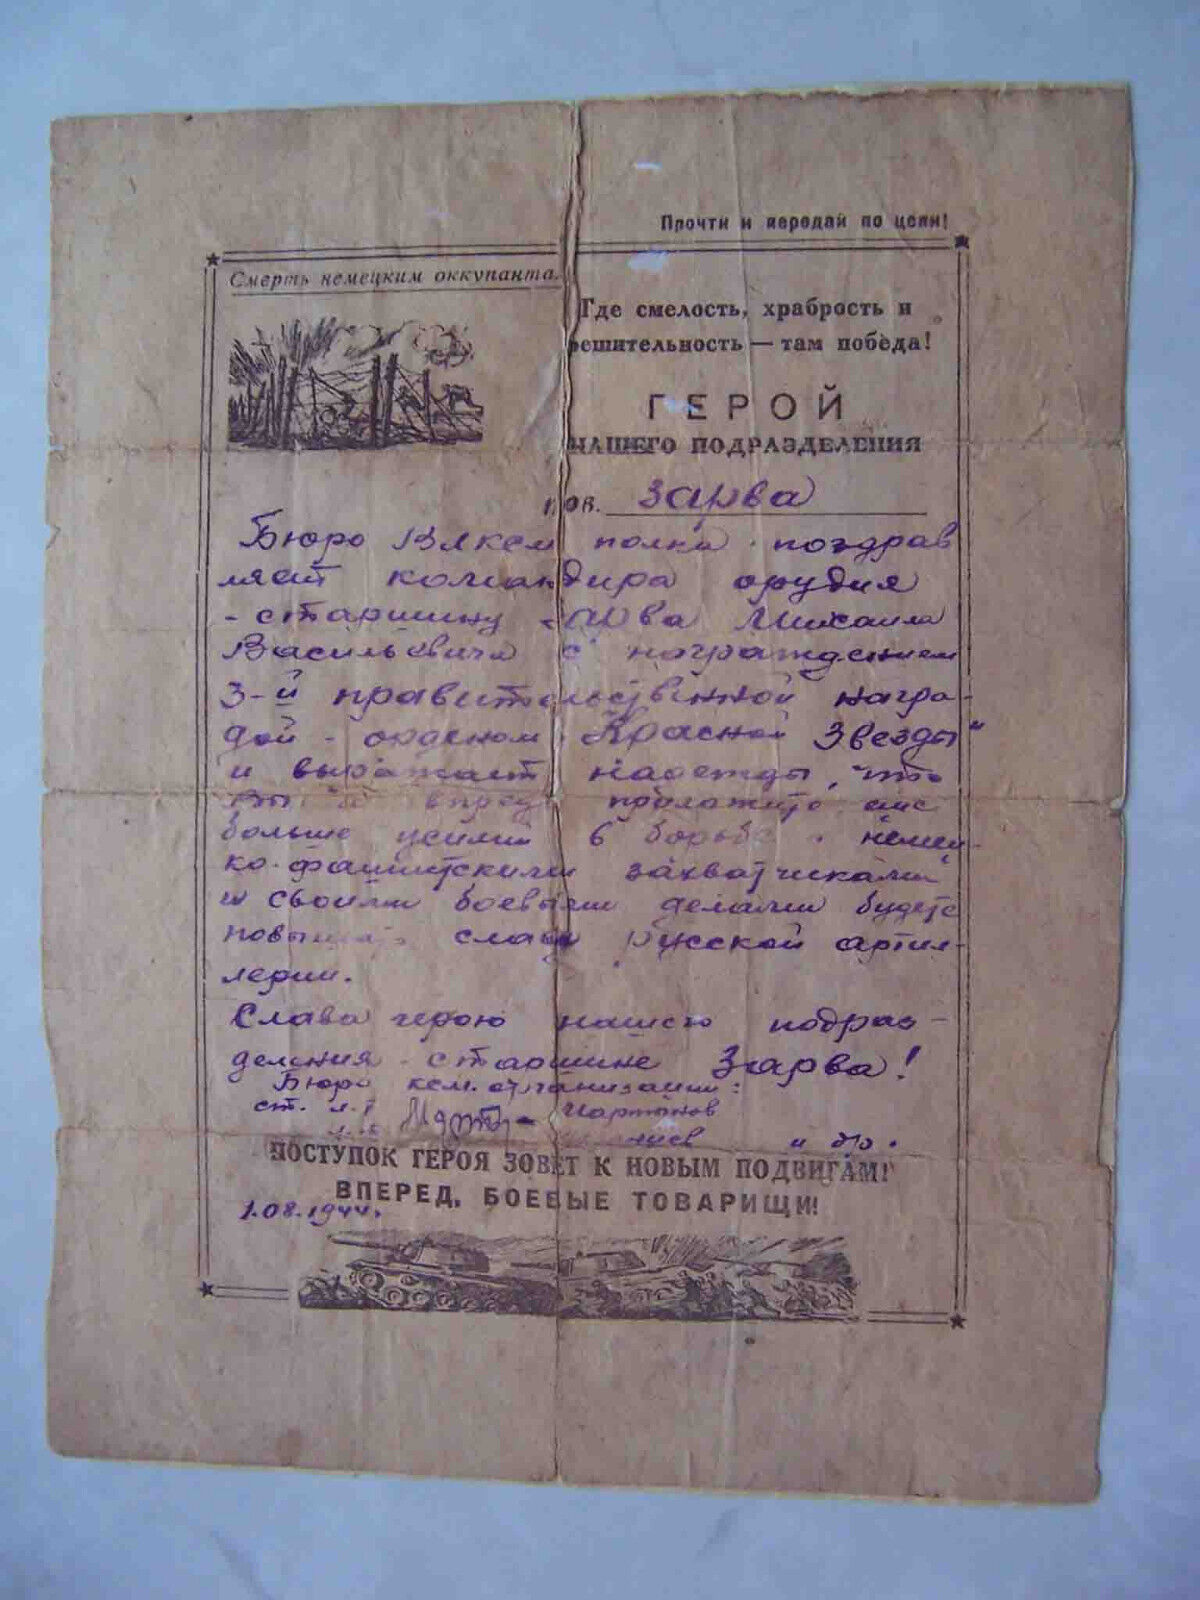 Прочти и передай по цепи!
Смерть немецким оккупанта
Где смелость, храбрость и
решительность — там победа!
ГЕРОЙ
НАШЕГО ПОДРАЗДЕЛЕНИЯ
тов. Зарва
Бюро ВЛКСМ полка поздрав
ляет командира орудия
- старшину Зарва Михаила
Васильевича с награждением
3-й правительственной награ-
дой - орденом "Красной Звезды"
и выражает надежды, что
Вы и впредь приложите еще
больше усилий в борьбе с немец-
ко-фашистскими захватчиками
и своими боевыми делами будете
повышать славу русской артил-
лерии.
Слава герою нашего подраз-
деления - старшине Зарва!
Бюро ксм. организации:
ст. л-т Мартынов
и др.
ПОСТУПОК ГЕРОЯ ЗОВЕТ К НОВЫМ ПОДВИГАМ!
ВПЕРЕД, БОЕВЫЕ ТОВАРИЩИ!
1.08.1944.